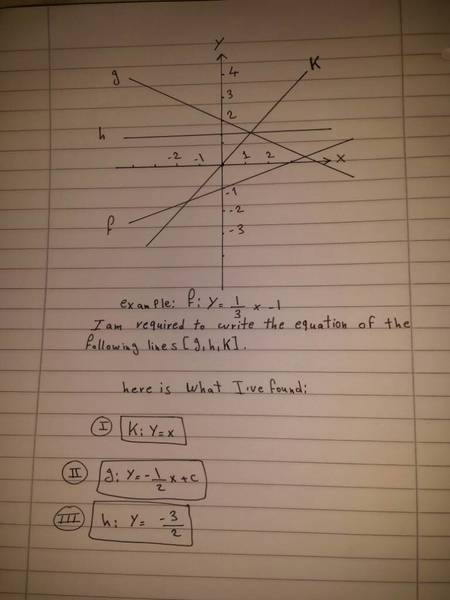 Y
g
4
K
3
2
h
-2 -1 1 2 X
-1
f
-2
-3
example: f: Y= 1/3 x -1
I am required to write the equation of the
following lines [g,h,K].
here is what I've found:
I K: Y=x
II g: Y=-1/2 x+c
III h: Y= -3/2